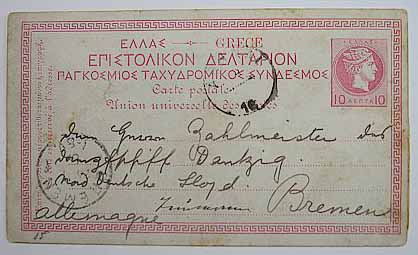 ΕΛΛΑΣ — GRECE
ΕΠΙΣΤΟΛΙΚΟΝ ΔΕΛΤΑΡΙΟΝ
ΠΑΓΚΟΣΜΙΟΣ ΤΑΧΥΔΡΟΜΙΚΟΣ ΣΥΝΔΕΣΜΟΣ
Carte postale
Union universelle des postes
10 ΛΕΠΤΑ 10
16
Zahlmeister des
Danzig
Nord Deutsche Lloyd.
Bremen
Allemagne
15